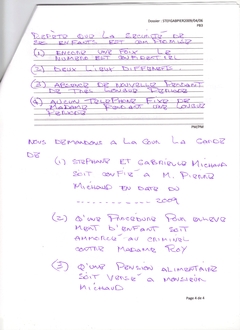 Dossier : STJ/IGABP/ER/209/04/06
REPÈTE QUE LA SÉCURITÉ DE
SES ENFANTS EST SON PREMIER
(1) ENCORE UNE FOIX LE
NUMÉRO EST CONFIDENTIEL
(2) DEUX LIEUX DIFFERENTS
(3) ABSENCE DE NOUVELLE PENDANT
DE TRÈS LONGUE PERIODE
(4) AUCUN TELEPHONE FIXE DE
MADAME PENDANT UNE LONGUE
PERIODE
PM/PM
NOUS DEMANDONS A LA QUE LA GARDE
DE
(1) STEPHANE ET GABRIELLE MICHAUD
SOIT CONFIÉ A M. PIERRE
MICHAUD EN DATE DU
---------- 2009
(2) QU'UNE PROCÉDURE POUR ENLEVE
MENT D'ENFANT SOIT
AMMORCÉ AU CRIMINEL
CONTRE MADAME ROY
(3) QU'UNE PENSION ALIMENTAIRE
SOIT VERSÉ A MONSIEUR
MICHAUD
Page 4 de 4